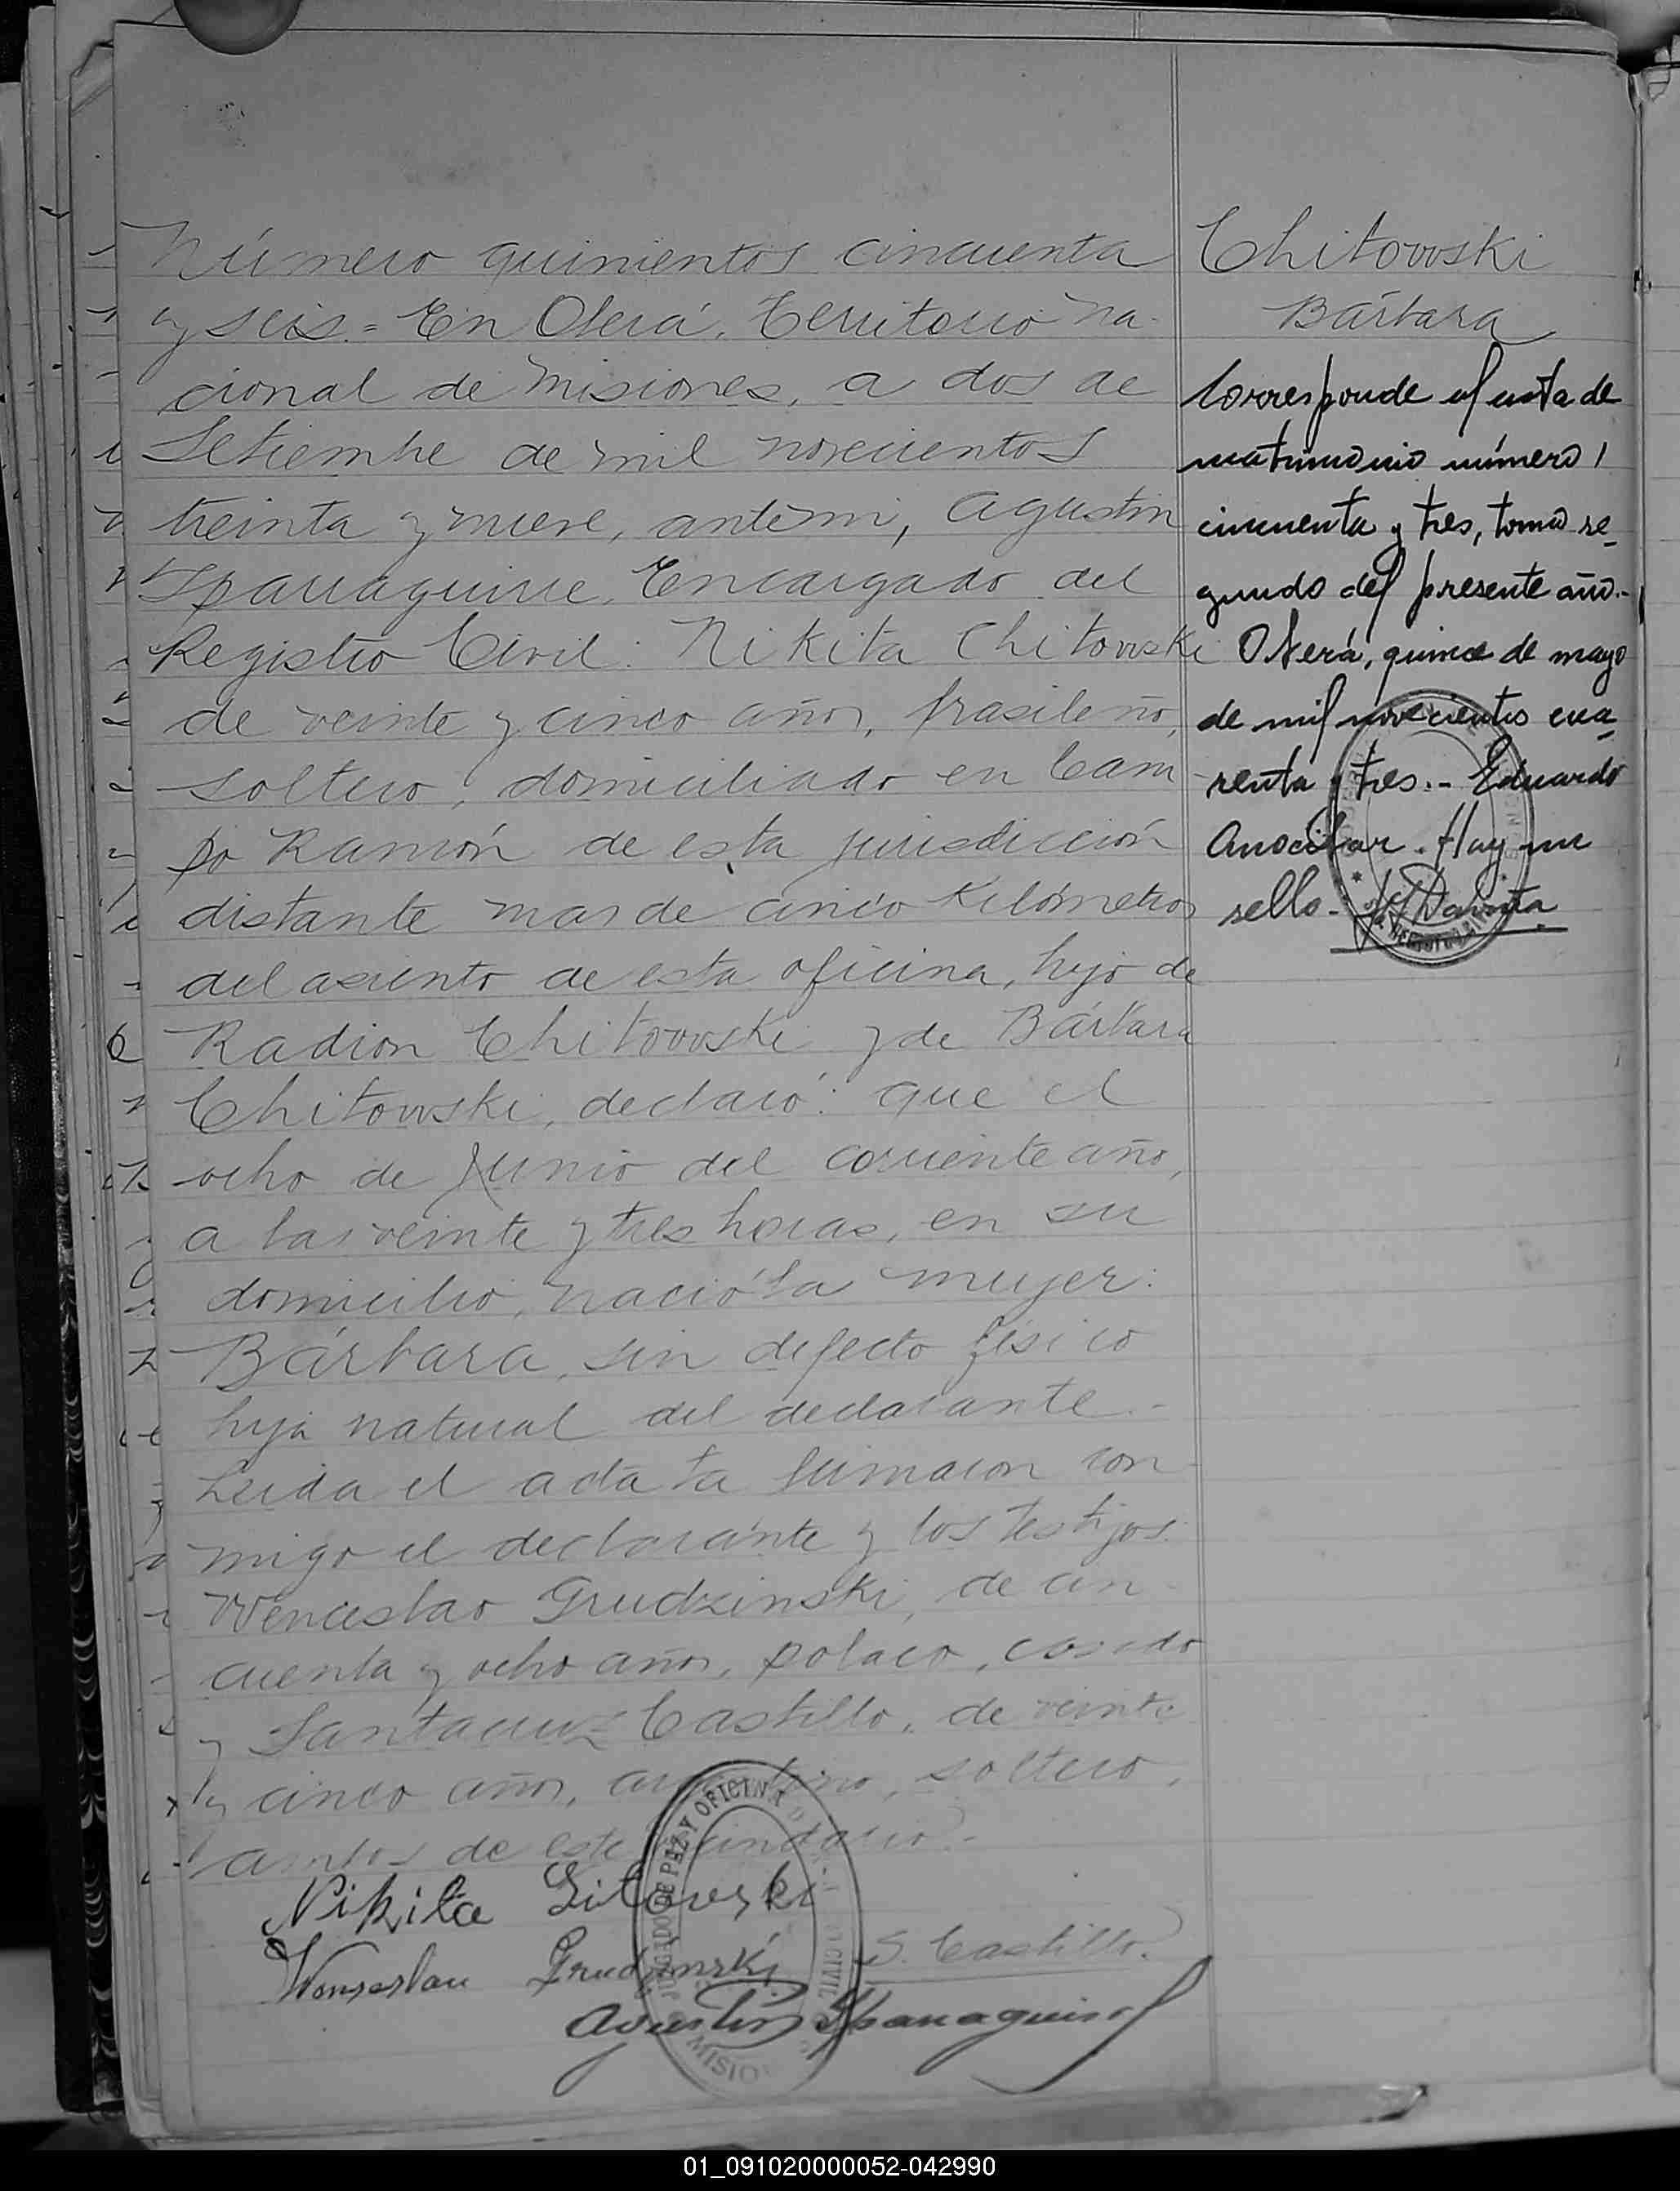 Número quinientos cincuenta
y seis.= En Oberá, Territorio Na-
cional de Misiones, a dos de
Setiembre de mil novecientos
treinta y nueve, ante mi, Agustin
Iparraguirre, Encargado del
Registro Civil: Nikita Chitowski
de veinte y cinco años, brasileño,
soltero, domiciliado en Cam-
po Ramón de esta jurisdicción
distante mas de cinco Kilómetros
del asiento de esta oficina, hijo de
Radion Chitowski y de Bárbara
Chitowski, declaró: que el
ocho de Junio del corriente año,
a las veinte y tres horas, en su
domicilio, nació la mujer:
Bárbara, sin defecto físico
hija natural del declarante.-
Leida el acta la firmaron con-
migo el declarante y los testigos
Wenceslao Grudzinski, de cin-
cuenta y ocho años, polaco, casado
y Santacruz Castillo, de veinte
y cinco años, argentino, soltero,
ambos de este vecindario.-
Nikita Sitowski
Grudzinski
S. Castillo.
Agustin Iparraguirre
JUZGADO DE PAZ Y OFICINA
CIVIL
MISIO
Chitowski
Bárbara
Corresponde al acta de
matrimonio número
cincuenta y tres, tomo se-
gundo del presente año.-
Oberá, quince de mayo
de mil novecientos cua-
renta y tres.- Eduardo
Anocibar. Hay un
sello.-
01_091020000052-042990